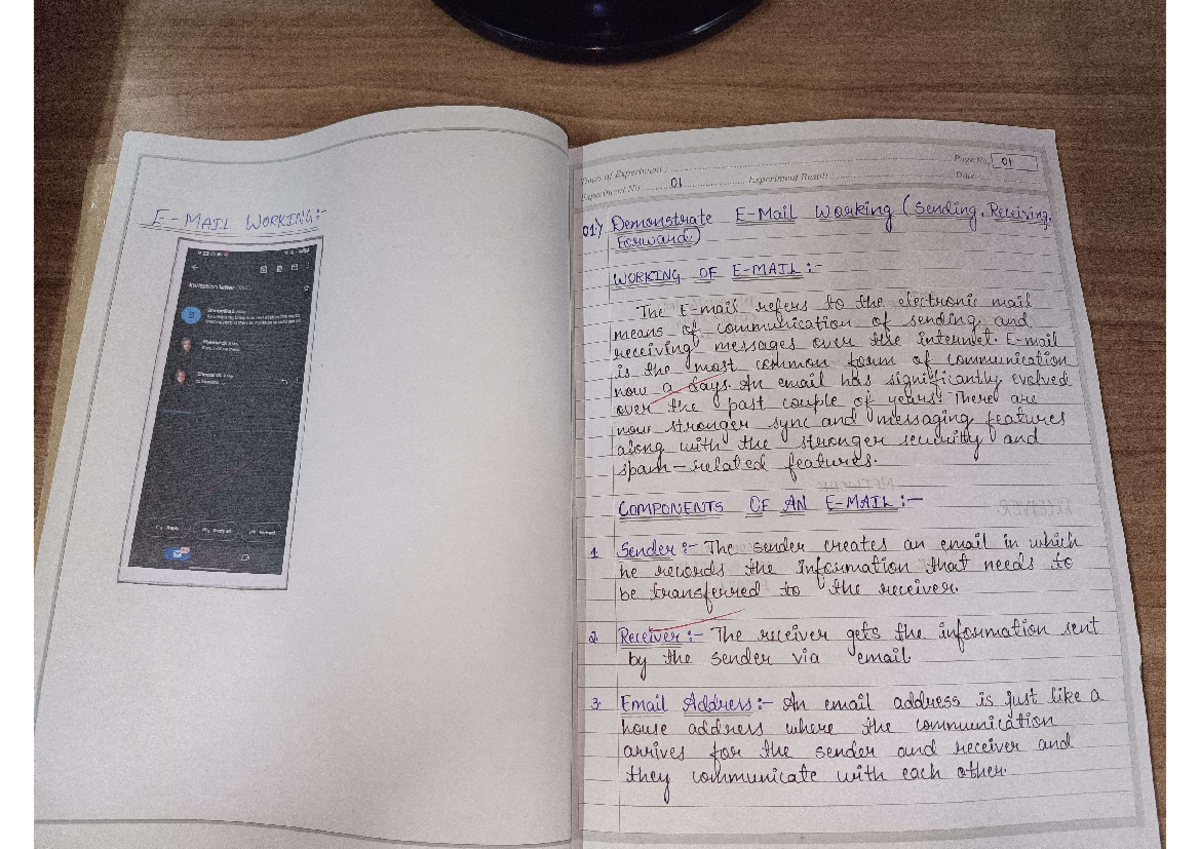 E-MAIL WORKING:-
Invitation letter
Reply
Reply all
Forward
Page No. 01
Experiment :
Experiment No. 01 Experiment Result :
Date
01) Demonstrate E-Mail Working (Sending, Receiving,
Forward)
WORKING OF E-MAIL :-
The E-mail refers to the electronic mail
means of communication of sending and
receiving messages over the internet. E-mail
is the most common form of communication
now a days. An email has significantly evolved
over the past couple of years. There are
now stronger sync and messaging features
along with the stronger security and
spam-related features.
COMPONENTS OF AN E-MAIL :-
1. Sender :- The sender creates an email in which
he records the information that needs to
be transferred to the receiver.
2. Receiver :- The receiver gets the information sent
by the sender via email.
3. Email Address :- An email address is just like a
house address where the communication
arrives for the sender and receiver and
they communicate with each other.